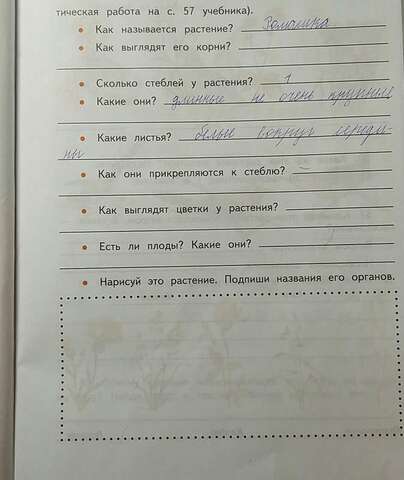 тическая работа на с. 57 учебника).
• Как называется растение? Ромашка
• Как выглядят его корни?
• Сколько стеблей у растения? 1
• Какие они? длинные не очень
• Какие листья? белые вокруг середи-
ны
• Как они прикрепляются к стеблю?
• Как выглядят цветки у растения?
• Есть ли плоды? Какие они?
• Нарисуй это растение. Подпиши названия его органов.